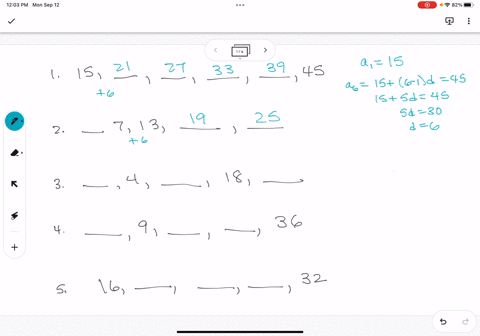 12:03 PM Mon Sep 12
82%
1/6
1. 15, 21, 27, 33, 39, 45
+6
a₁ = 15
a₆ = 15 + (6-1)d = 45
15 + 5d = 45
5d = 30
d = 6
2. __ 7, 13, 19, 25
+6
3. __, 4, __, 18, __
4. __, 9, __, __, 36
5. 16, __, __, __, 32